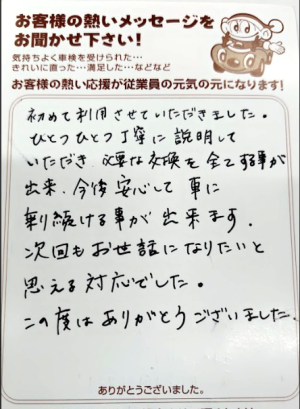 お客様の熱いメッセージを
お聞かせ下さい!
気持ちよく車検を受けられた…
きれいに直った…満足した…などなど
お客様の熱い応援が従業員の元気の元になります!
初めて利用させていただきました。
ひとつひとつ丁寧に説明して
いただき、必要な交換を全てする事が
出来、今後安心して車に
乗り続ける事が出来ます。
次回もお世話になりたいと
思える対応でした。
この度はありがとうございました。
ありがとうございました。